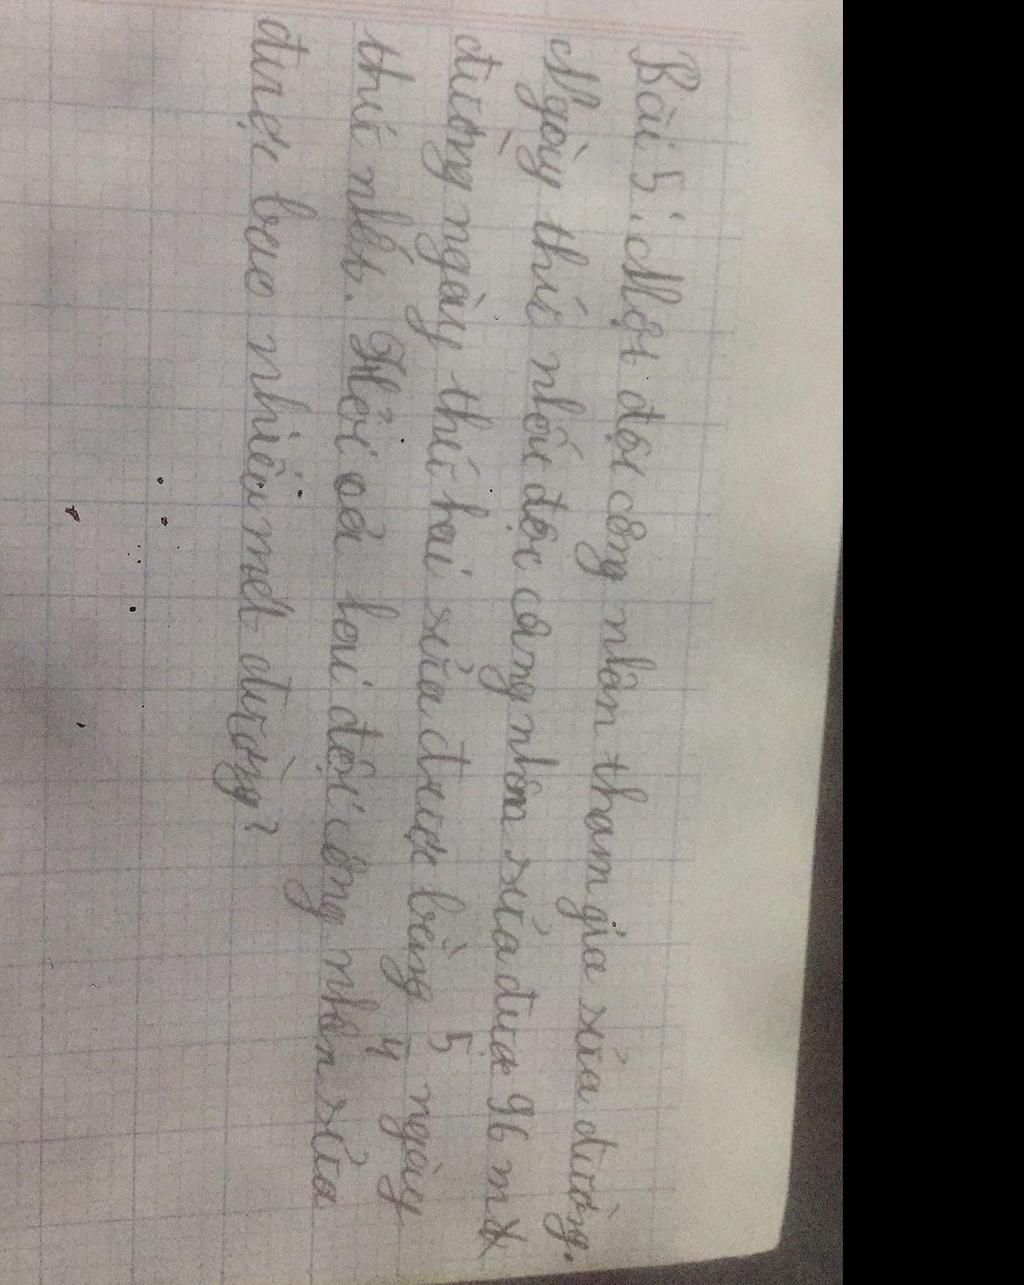 Bài 5: Một đội công nhân tham gia sửa đường.
Ngày thứ nhất đội công nhân sửa được 96 m
đường ngày thứ hai sửa được bằng 5/4 ngày
thứ nhất. Hỏi cả hai đội công nhân sửa
được bao nhiêu mét đường?